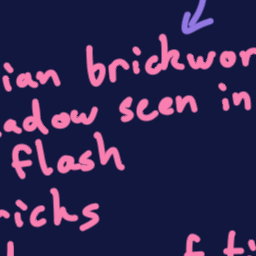 ian brickwor
adow seen in
flash
ricks